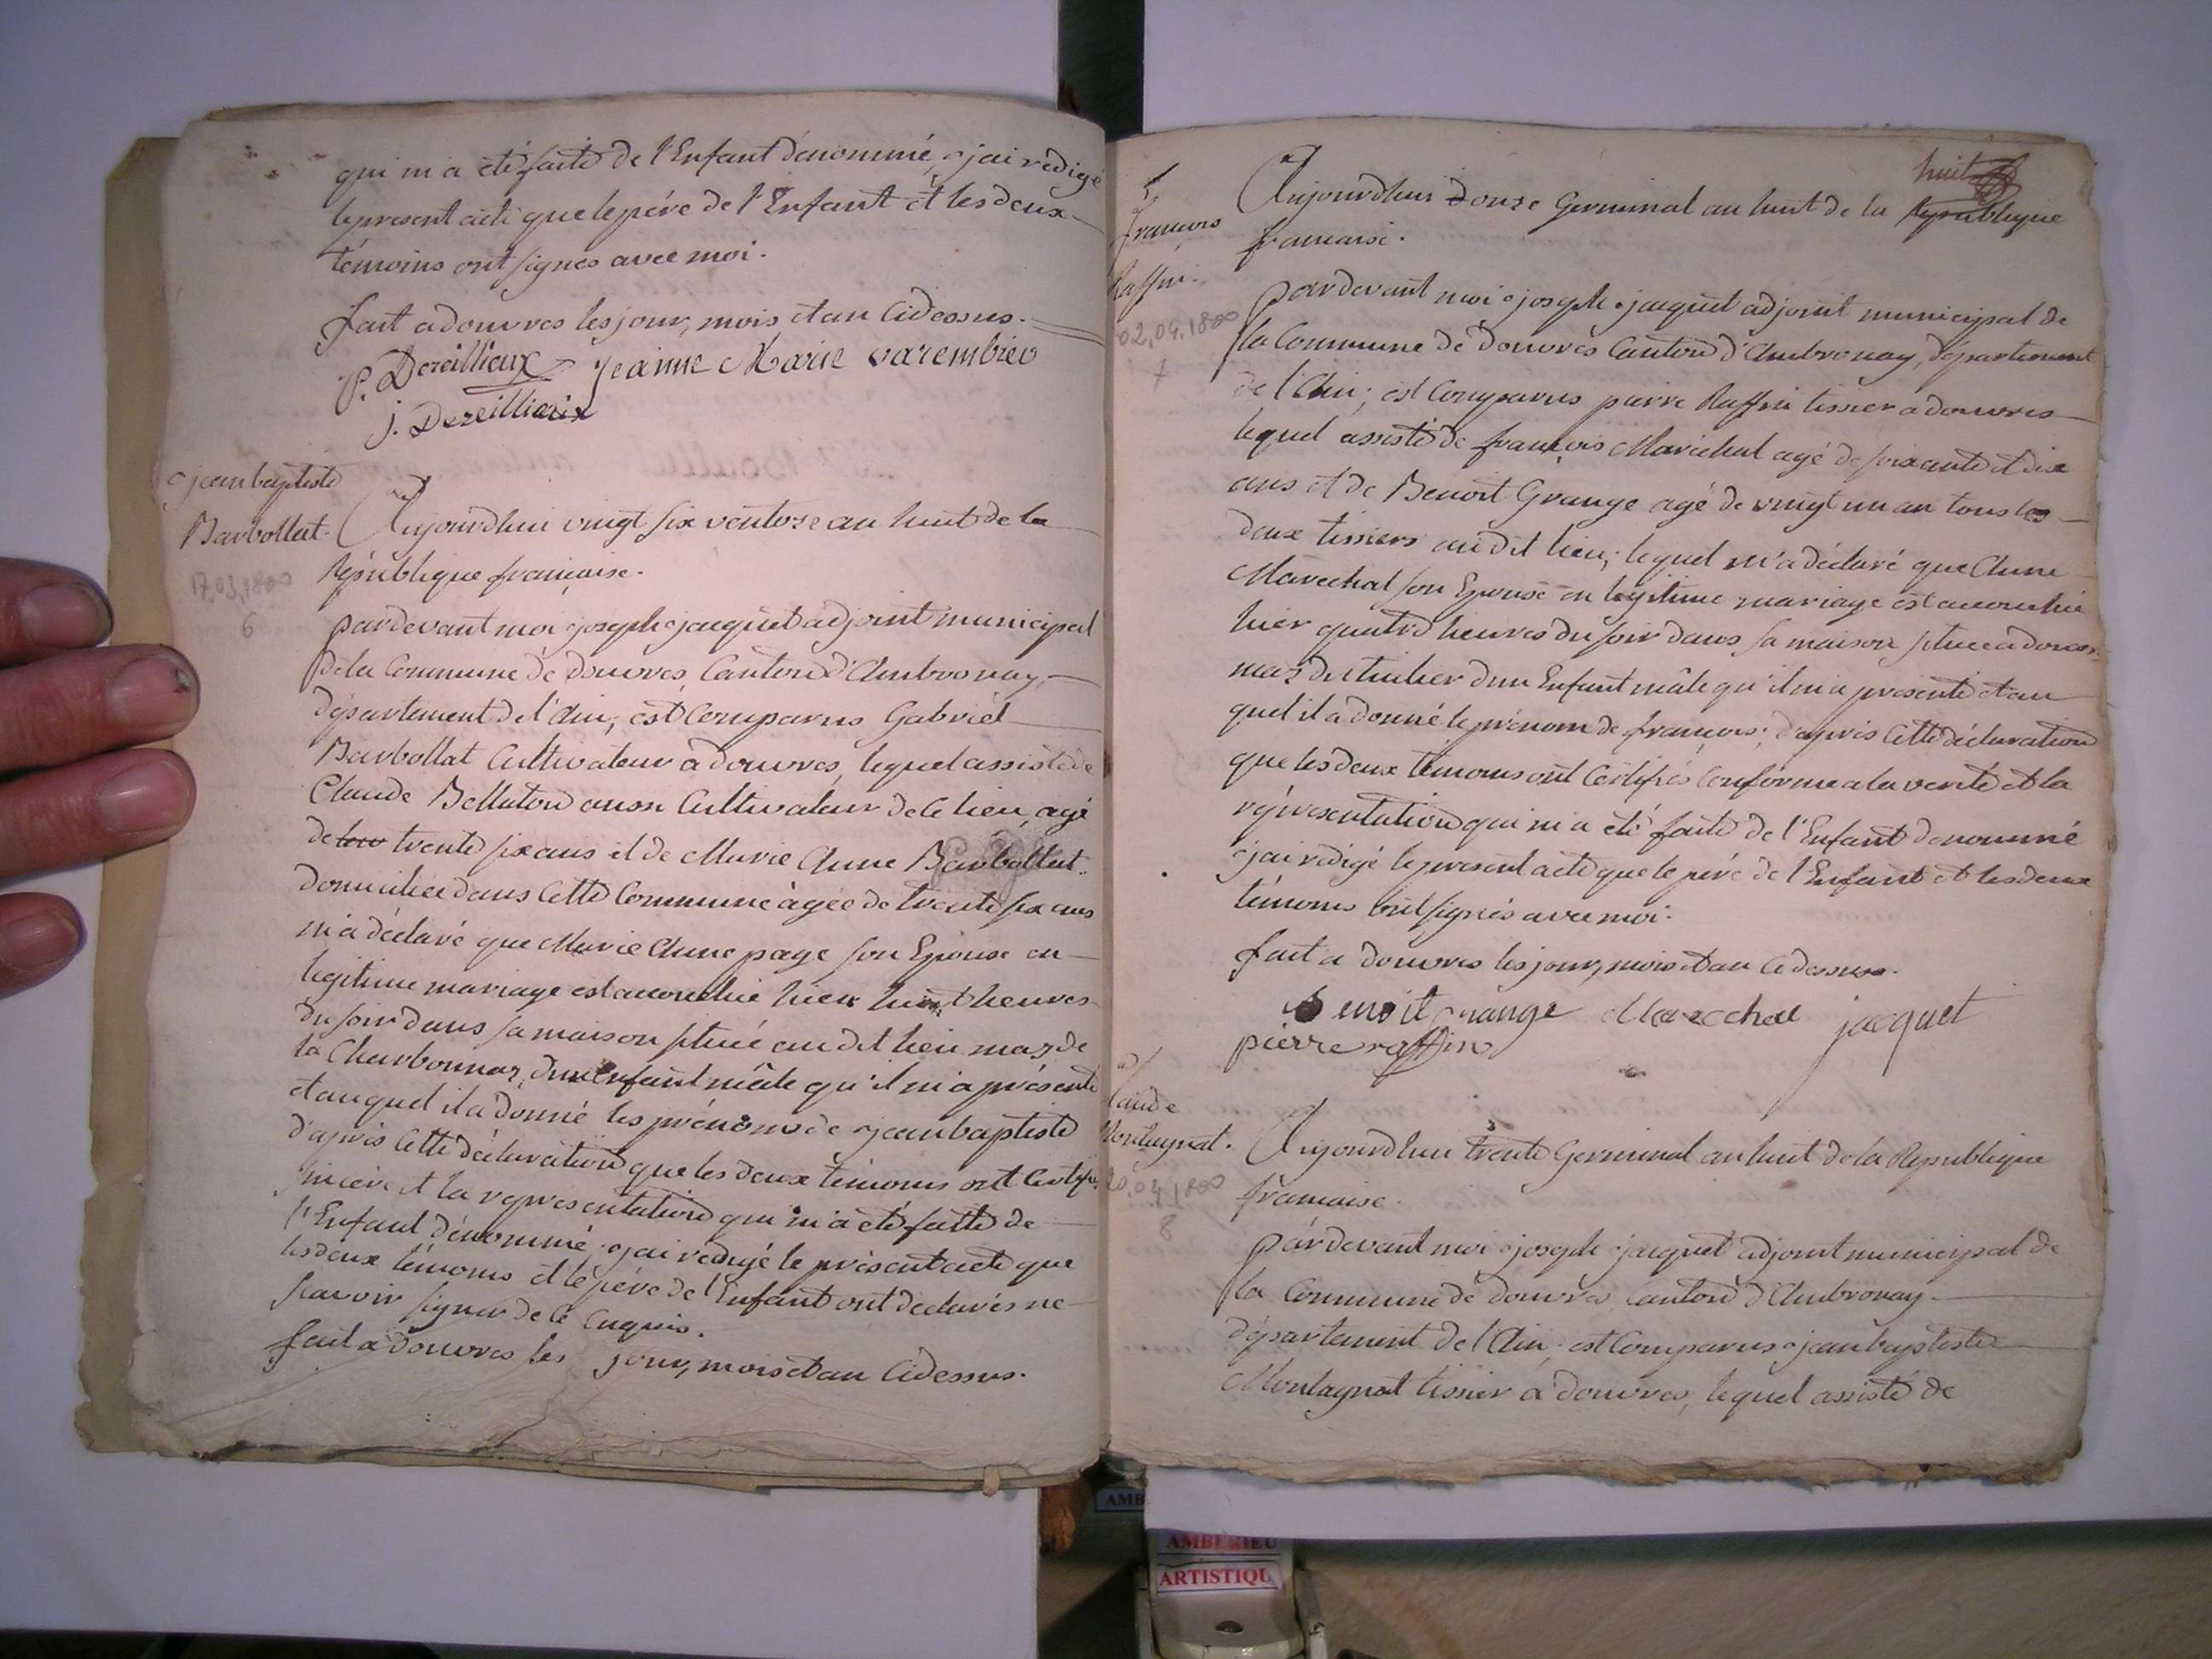 qui m'a été faite de l'Enfant dénommé, j'ai rédigé
le present acte que le père de l'Enfant et les deux
témoins ont signés avec moi.
fait a douvres les jour, mois et an Cidessus.
P. Dereillieux Jeanne Marie varembier
J. Dereillieux
jean baptiste
Barbollat.
17,03,1800
6
Aujourdhui vingt six ventose an huit de la
République française.
pardevant moi joseph jacquet adjoint municipal
de la Commune de douvres, Canton d'Ambronay,
département de l'Ain, est Comparus Gabriel
Barbollat Cultivateur a douvres, lequel assisté de
Claude Bellaton aussi Cultivateur de Ce lieu, agé
de trente six ans et de Marie Anne Barbollat
domiciliée dans Cette Commune âgée de trente six ans
m'a déclaré que Marie Anne page son Epouse en
legitime mariage est accouchée hier huit heures
du soir dans sa maison située au dit lieu mas de
la Charbonnas, d'un enfant mâle qu'il m'a présenté
et auquel il a donné les prénoms de jean baptiste
d'après Cette déclaration que les deux témoins ont Certifiés
sincère et la representation qui m'a été faitte de
l'Enfant dénommé, j'ai redigé le présent acte que
les deux témoins et le père de l'Enfant ont declarés ne
savoir signer de Ce Enquis.
fait a douvres les jour, mois et an Cidessus.
huit
françois
Raffin.
02,04,1800
7
Aujourdhui Douze Germinal an huit de la République
francaise.
pardevant moi joseph jacquet adjoint municipal de
la Commune de douvres Canton d'Ambronay, département
de l'Ain; est Comparus pierre Raffin tissier a douvres
lequel assisté de françois Maréchal agé de soixante et dix
ans et de Benoit Grange agé de vingt un an tous les
deux tissiers au dit lieu; lequel m'a déclaré que Anne
Marechal son Epouse en legitime mariage est accouchée
hier quatre heures du soir dans sa maison située a douvres
mas du d'un Enfant mâle qu'il m'a presenté et au
quel il a donné le prénom de françois; d'après Cette déclaration
que les deux témoins ont Certifiés Conforme a la verité et la
représentation qui m'a été faite de l'Enfant denommé
j'ai redigé le present acte que le père de l'Enfant et les deux
témoins ont signés avec moi.
fait a douvres les jour, mois et an Cidessus.
Benoit grange Marechal jacquet
pierre raffin
laude
Montagnat.
20,04,1800
8
Aujourdhui trente Germinal an huit de la République
francaise.
pardevant moi joseph jacquet adjoint municipal de
la Commune de douvres, Canton d'Ambronay.
département de l'Ain, est Comparus jean baptiste
Montagnat tissier a douvres, lequel assisté de
AMB
AMBERIEU
ARTISTIQU